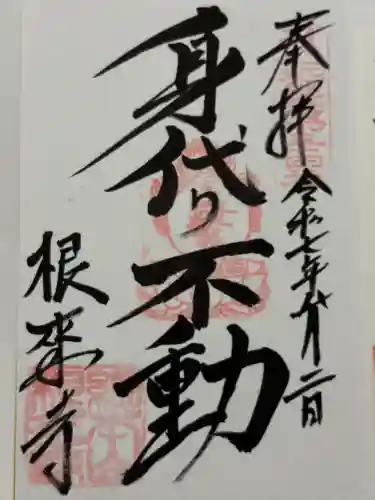 奉拝
令和七年十一月二日
身代り不動
根来寺